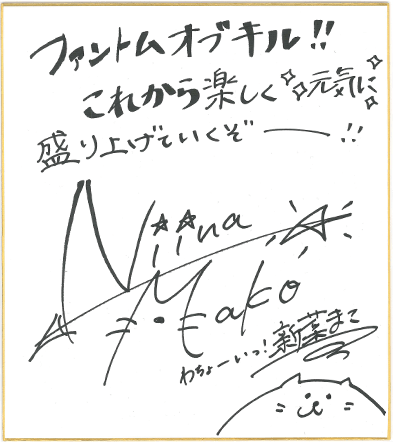 ファントムオブキル!!
これから楽しく元気に
盛り上げていくぞー!!
Niina
Mako
わちょーいっ!新菜まこ